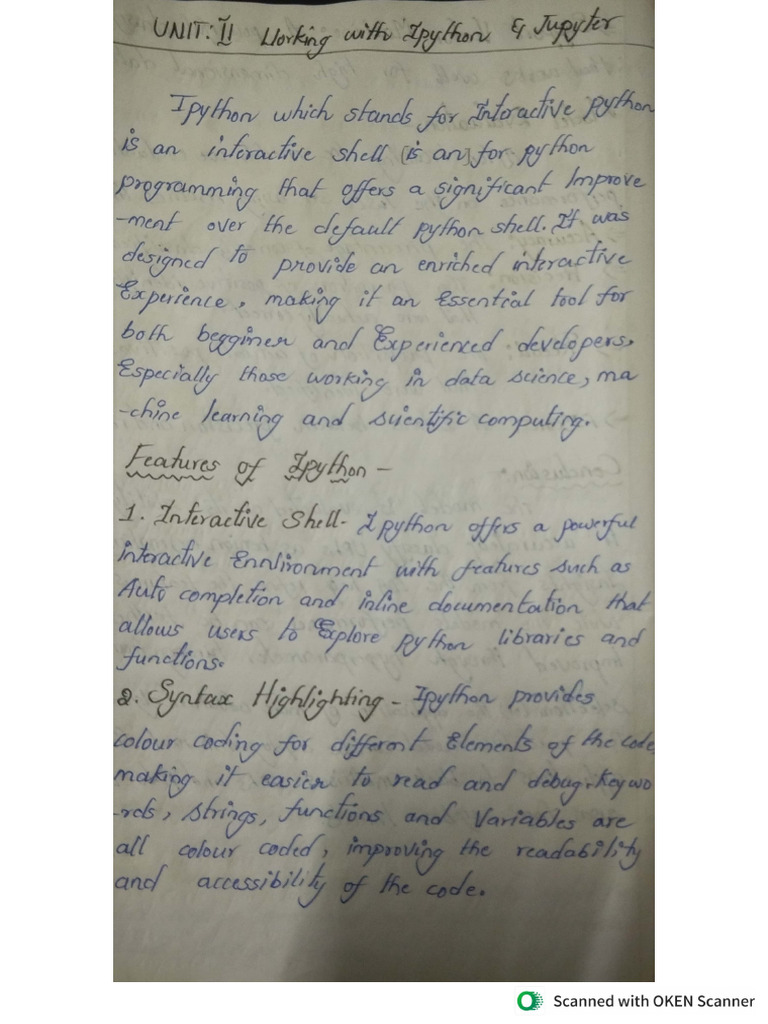 UNIT: II Working with Ipython & Jupyter
Ipython which stands for Interactive python
is an interactive shell [is an] for python
programming that offers a significant Improve
-ment over the default python shell. It was
designed to provide an enriched interactive
Experience, making it an Essential tool for
both begginer and Experienced developers.
Especially those working in data science, ma
-chine learning and scientific computing.
Features of Ipython -
1. Interactive Shell- Ipython offers a powerful
interactive Ennlironment with features such as
Auto completion and inline documentation that
allows users to Explore python libraries and
functions.
2. Syntax Highlighting - Ipython provides
colour coding for different Elements of the code
making it easier to read and debug. Keywo
-rds, strings, functions and Variables are
all colour coded, improving the readability
and accessibility of the code.
Scanned with OKEN Scanner